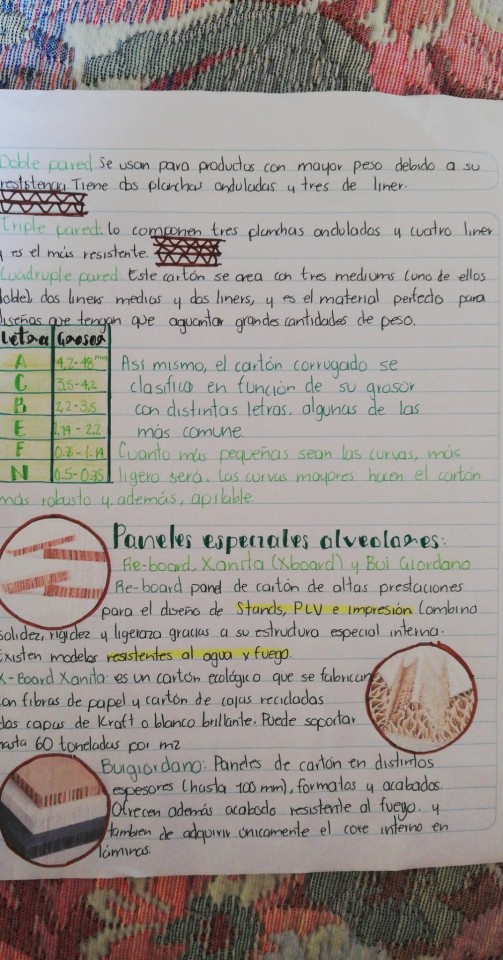 Doble pared: Se usan para productos con mayor peso debido a su
resistencia. Tiene dos planchas onduladas y tres de liner.
Triple pared: lo componen tres planchas onduladas y cuatro liner
y es el más resistente.
Cuadruple pared: Este cartón se crea con tres mediums (uno de ellos
doble), dos liners medios y dos liners, y es el material perfecto para
diseños que tengan que aguantar grandes cantidades de peso.
Letra Grosor
A 4,2-48 mm
C 3,5-4,2
B 2,2-3,5
E 1,14-2,2
F 0,8-1,14
N 0,5-0,75
Así mismo, el cartón corrugado se
clasifica en función de su grosor
con distintas letras. algunas de las
más comune
Cuanto más pequeñas sean las curvas, más
ligero será. Las curvas mayores hacen el cartón
más robusto y además, apilable.
Paneles especiales alveolares:
Re-board, Xanita (Xboard) y Bui Giordano
Re-board panel de cartón de altas prestaciones
para el diseño de Stands, PLV e impresión Combina
solidez, rigidez y ligereza gracias a su estructura especial interna.
Existen modelos resistentes al agua y fuego.
X-Board Xanita: es un cartón ecológico que se fabrican
con fibras de papel y cartón de cajas recicladas
dos capas de Kraft o blanco brillante. Puede soportar
hasta 60 toneladas por m2
Buigiordano: Paneles de cartón en distintos
espesores (hasta 100 mm), formatos y acabados.
Ofrecen además acabado resistente al fuego. y
tambien de adquirir únicamente el core interno en
láminas.